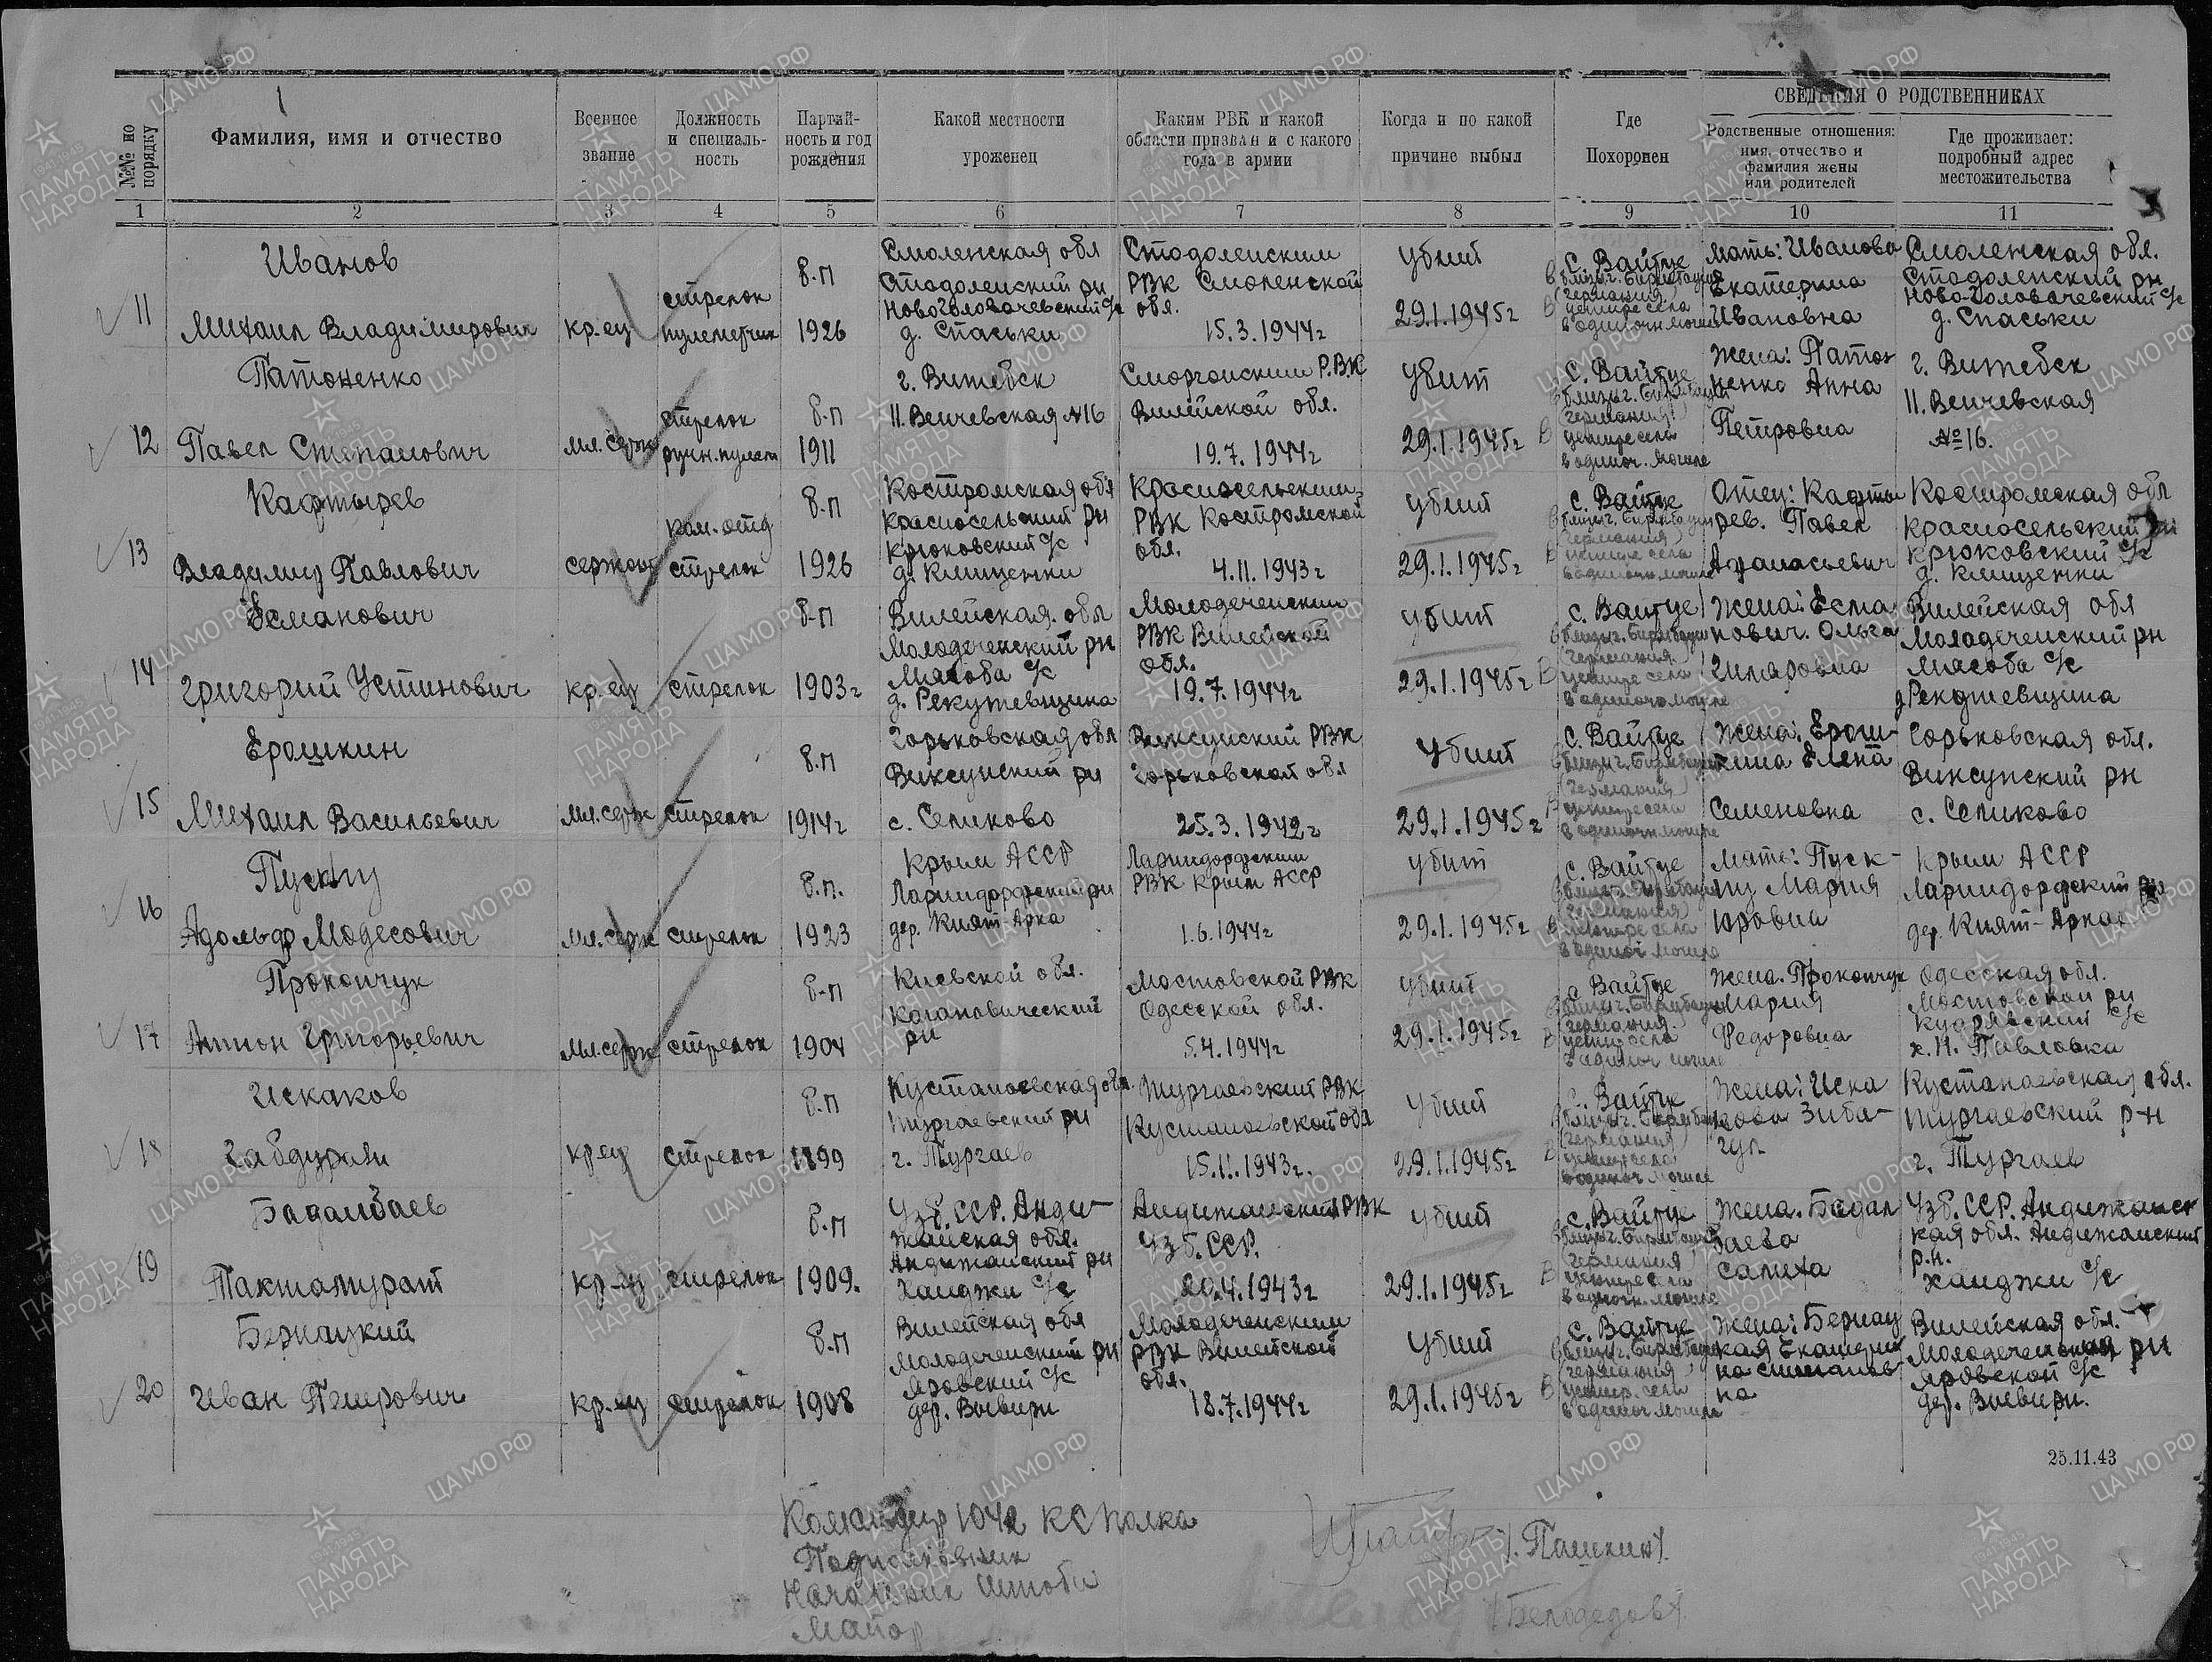 СВЕДЕНИЯ О РОДСТВЕННИКАХ
№№ по порядку
Фамилия, имя и отчество
Военное звание
Должность и специаль-ность
Партий-ность и год рождения
Какой местности уроженец
Каким РВК и какой области призван и с какого года в армии
Когда и по какой причине выбыл
Где Похоронен
Родственные отношения: имя, отчество и фамилия жены или родителей
Где проживает: подробный адрес местожительства
1 2 3 4 5 6 7 8 9 10 11
11
Иванов
Михаил Владимирович
кр-ец
стрелок
пулеметчик
б-п
1926
Смоленская обл
Стодоленский рн
Новоголовачевский с/с
д. Спаськи
Стодоленским
РВК Смоленской
обл.
15.3.1944г
убит
29.1.1945г
с. Вайтзе
Мать: Иванова
Екатерина
Ивановна
Смоленская обл.
Стодоленский рн
Ново-Головачевский с/с
д. Спаськи
12
Патоненко
Павел Степанович
мл. серж
стрелок
ручн. пулем
б-п
1911
г. Витебск
II. Веичевская №16
Сморгонским РВК
Вилейской обл.
19.7.1944г
убит
29.1.1945г
с. Вайтзе
Жена: Патон
ненко Анна
Петровна
г. Витебск
II. Веичевская
№16.
13
Кафтырев
Владимир Павлович
сержант
ком. отд
стрелок
б-п
1926
Костромская обл
Красносельский рн
Крюковский с/с
д. Клищенки
Красносельским
РВК Костромской
обл.
4.11.1943г
убит
29.1.1945г
с. Вайтзе
Отец: Кафты
рев. Павел
Афанасьевич
Костромская обл
Красносельский рн
Крюковский с/с
д. Клищенки
14
Есманович
Григорий Устинович
кр-ец
стрелок
б-п
1903г
Вилейская обл
Молодеченский рн
Мясоба с/с
д. Рекутевщина
Молодеченским
РВК Вилейской
обл.
19.7.1944г
убит
29.1.1945г
с. Вайтзе
Жена: Есма
нович. Ольга
Вилейская обл
Молодеченский рн
Мясоба с/с
15
Ерошкин
Михаил Васильевич
мл. серж
стрелок
б-п
1914г
Горьковская обл
Виксунский рн
с. Селиково
Виксунский РВК
Горьковской обл
25.3.1942г
убит
29.1.1945г
с. Вайтзе
Жена: Ерош-
кина Елена
Семеновна
Горьковская обл.
Виксунский рн
с. Селиково
16
Адольф Модесович
мл. серж
стрелок
б.п.
1923
Крым АССР
Лариндорфский рн
дер. Кият-Арка
Лариндорфским
РВК Крым АССР
1.6.1944г
убит
29.1.1945г
с. Вайтзе
Мать: Пуск-
Мария
Юровна
Крым АССР
Лариндорфский рн
дер. Кият-Аркас
17
Прокопчук
Антон Григорьевич
мл. серж
стрелок
б-п
1904
Киевской обл.
Кагановический
рн
Мостовской РВК
Одесской обл.
5.4.1944г
убит
29.1.1945г
с. Вайтзе
Жена. Прокопчук
Мария
Федоровна
Одесская обл.
Мостовской рн
Кудрявский с/с
х. Н. Павловка
18
Искаков
Габдурали
кр-ец
стрелок
б-п
1899
Кустанаевская обл.
Тургаевский рн
г. Тургаев
Тургаевский РВК
Кустанаевской обл
15.11.1943г.
убит
29.1.1945г
с. Вайтзе
Жена: Иска
кова Зиба-
гул
Кустанаевская обл.
Тургаевский р-н
г. Тургаев
19
Бадалбаев
Тактамурат
кр-ец
стрелок
б-п
1909.
Узб. ССР. Анди-
жанская обл.
Андижанский рн
Ханджи с/с
Андижанский РВК
Узб. ССР.
20.4.1943г
убит
29.1.1945г
с. Вайтзе
Жена. Бадал
баева
Салиха
Узб. ССР. Андижанс
кая обл. Андижанский
р.н.
Ханджи с/с
20
Бернацкий
Иван Петрович
кр-ец
стрелок
б-п
1908
Вилейская обл
Молодеченский рн
Яровский с/с
Молодеченским
РВК Вилейской
обл.
18.7.1944г
убит
29.1.1945г
с. Вайтзе
Жена: Бернац
кая Екатери
на Степанов
на
Вилейская обл.
Молодеченский рн
Яровской с/с
25.11.43
Командир 1042 КС полка
Подполковник
/Пашкин/.
Начальник штаба
Майор
/Белодедов/
ПАМЯТЬ НАРОДА
ЦАМО.РФ